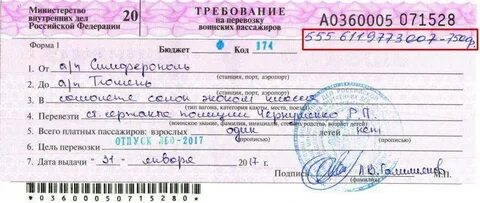 Министерство
внутренних дел
Российской Федерации
20
ТРЕБОВАНИЕ
на перевозку
воинских пассажиров
А0360005 071528
Форма 1
Бюджет Ф Код 174
555 6119773007-750р
1. От а/п Симферополь
(станция, порт, аэропорт)
2. До а/п Тюмень
(станция, порт, аэропорт)
3. В самолете салон эконом класса
(тип вагона, категория каюты, места, поезд)
4. Перевезти ст. сержанта полиции Чернышенко Р.П.
(воинское звание, фамилия, инициалы,
5. Всего платных пассажиров: взрослых один нет
6. Вид перевозки ОТПУСК ЛБО-2017
7. Дата выдачи «31» января 2017 г.
М.П.
0 3 6 0 0 0 5 0 7 1 5 2 8 0